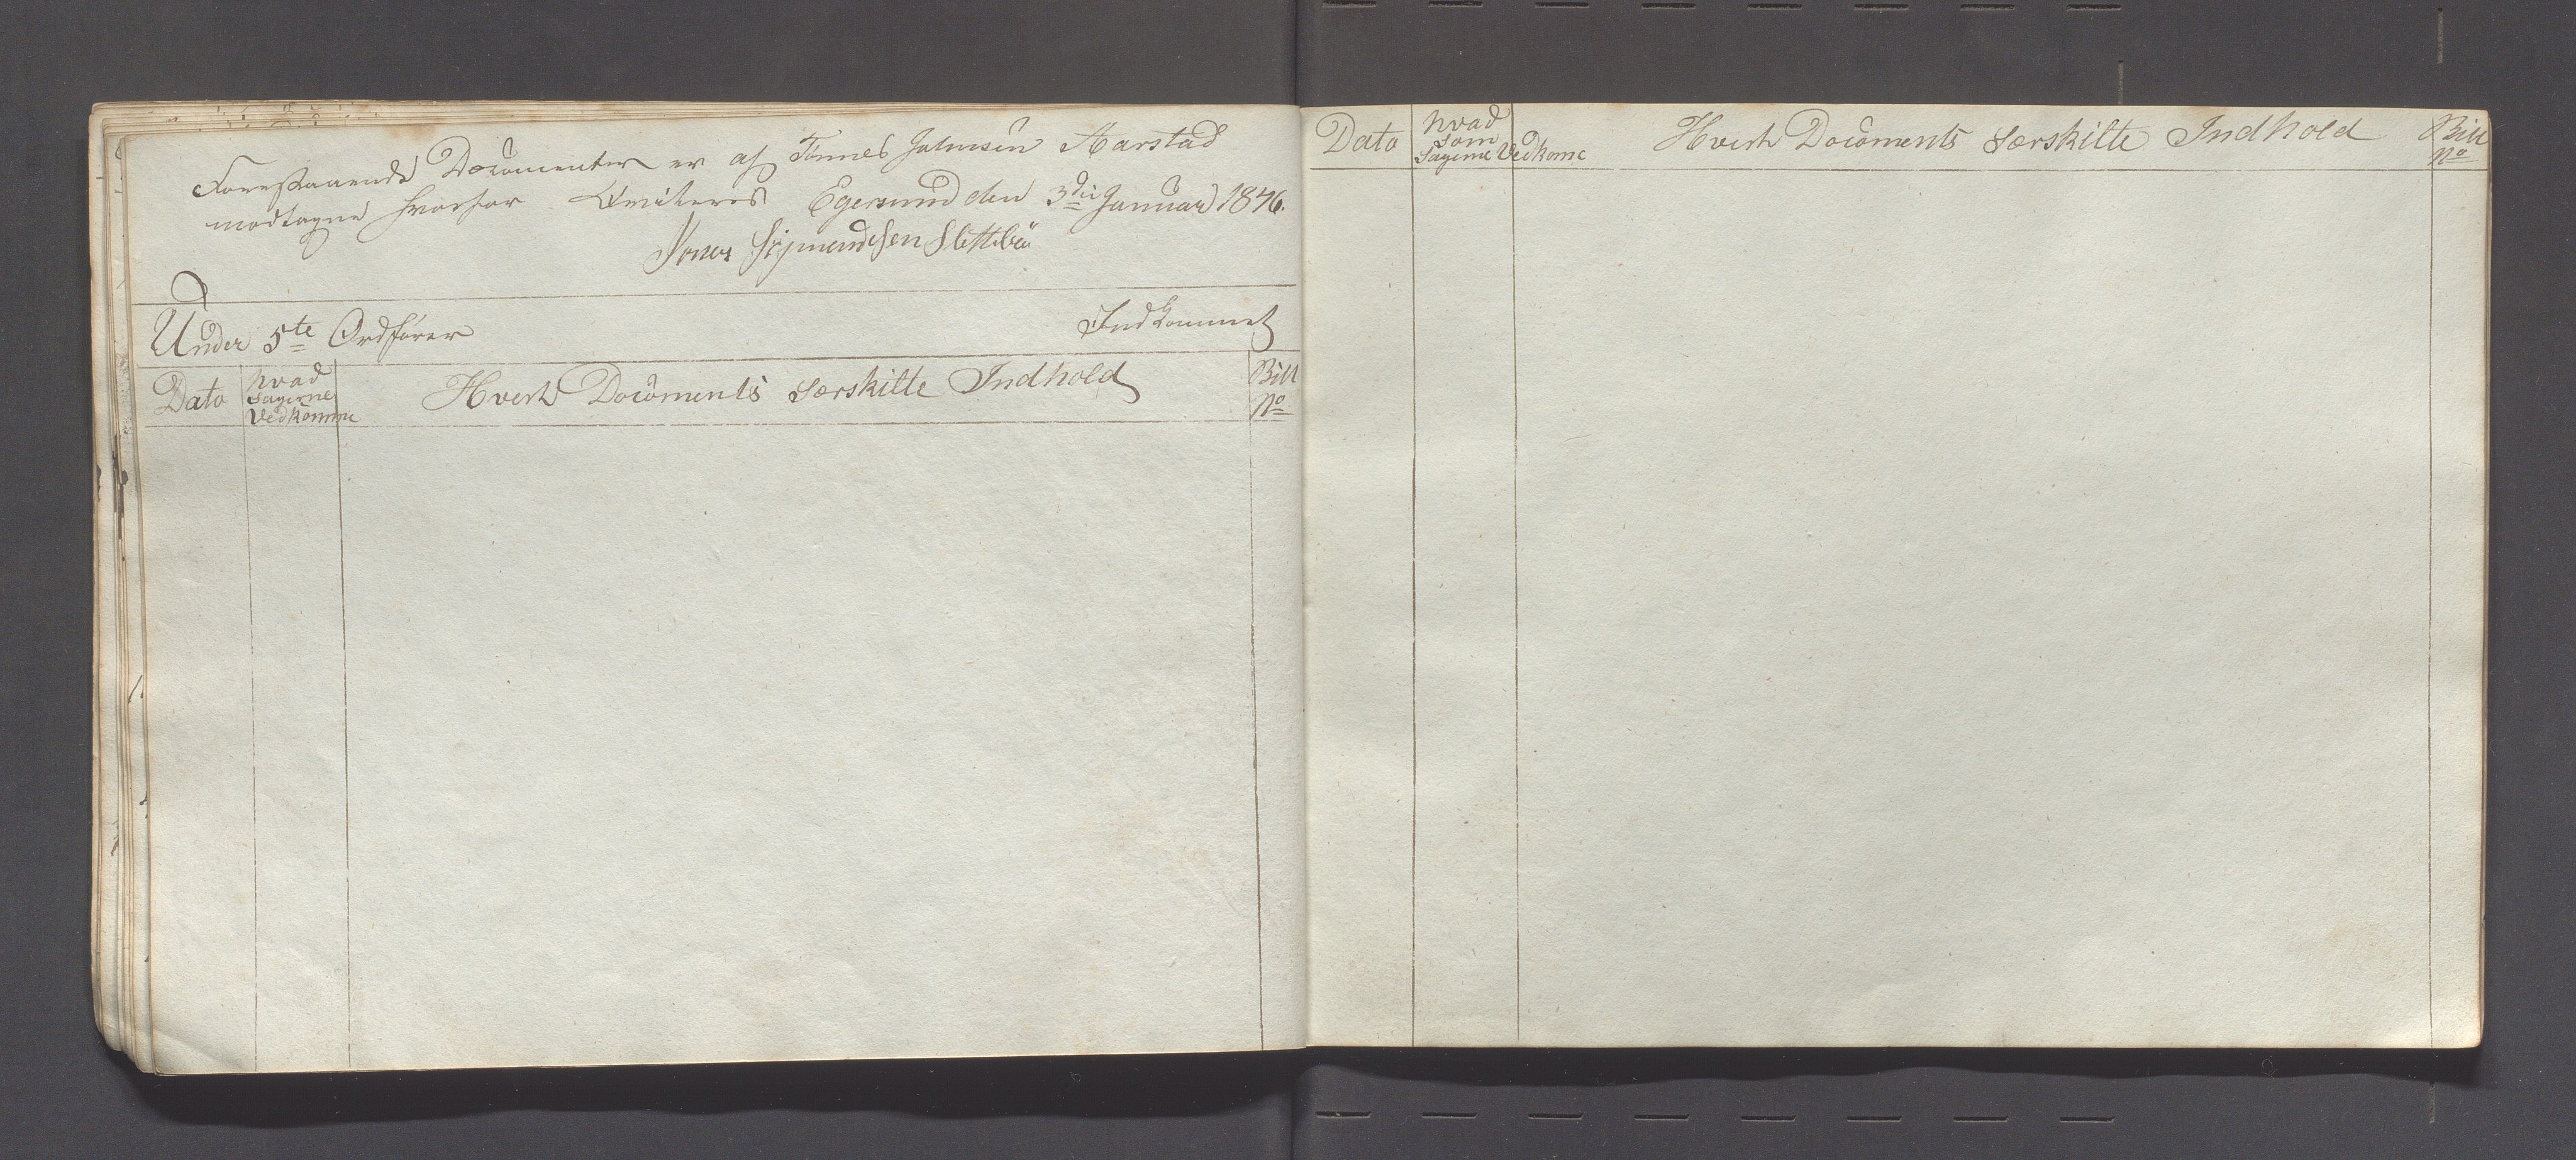 Forestaaende Documenter er af Tønnes Aarstad
modtagne hvorfor Qviteres Egersund den 3die Januar 1846.
Jonas Sigmundsen Slettebøe
Under 5te Ordfører
Indkommet
Dato
hvad
Sagerne
Vedkomme
Hvert Documents særskilte Indhold
Bill
No
Dato
hvad
som
Sagerne Vedkome
Hvert Documents særskilte Indhold
Bill
No